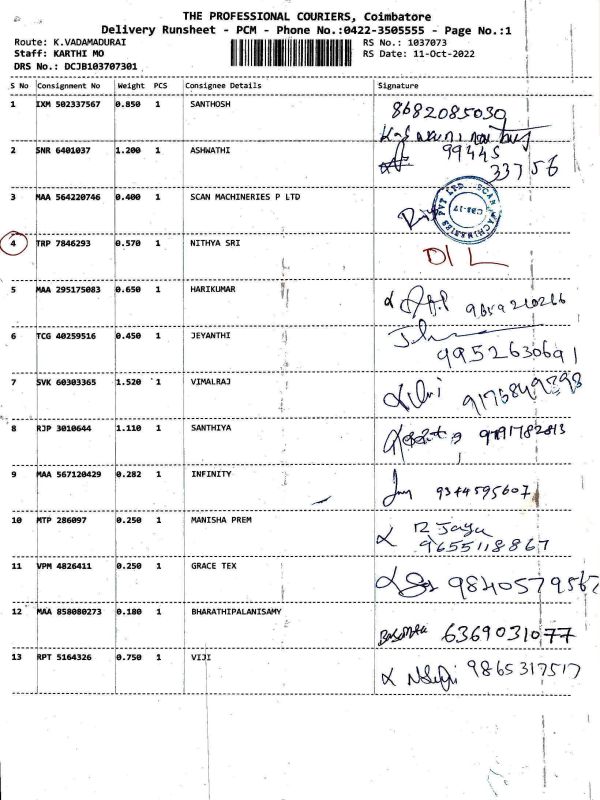 THE PROFESSIONAL COURIERS, Coimbatore
Delivery Runsheet - PCM - Phone No.:0422-3505555 - Page No.:1
Route: K.VADAMADURAI RS No.: 1037073
Staff: KARTHI MO RS Date: 11-Oct-2022
DRS No.: DCJB103707301
S No Consignment No Weight PCS Consignee Details Signature
1 IXM 502337567 0.850 1 SANTHOSH 8682085030
2 SNR 6401037 1.200 1 ASHWATHI 99445
33756
3 MAA 564220746 0.400 1 SCAN MACHINERIES P LTD
SCAN MACHINERIES PVT LTD. CBE-17
4 TRP 7846293 0.570 1 NITHYA SRI D/L
5 MAA 295175083 0.650 1 HARIKUMAR
6 TCG 40259516 0.450 1 JEYANTHI
9952630691
7 SVK 60303365 1.520 1 VIMALRAJ
8 RJP 3010644 1.110 1 SANTHIYA
9 MAA 567120429 0.282 1 INFINITY 9344595607
10 MTP 286097 0.250 1 MANISHA PREM R Jaya
9655118867
11 VPM 4826411 0.250 1 GRACE TEX 9840579567
12 MAA 858080273 0.180 1 BHARATHIPALANISAMY 6369031077
13 RPT 5164326 0.750 1 VIJI 9865317517